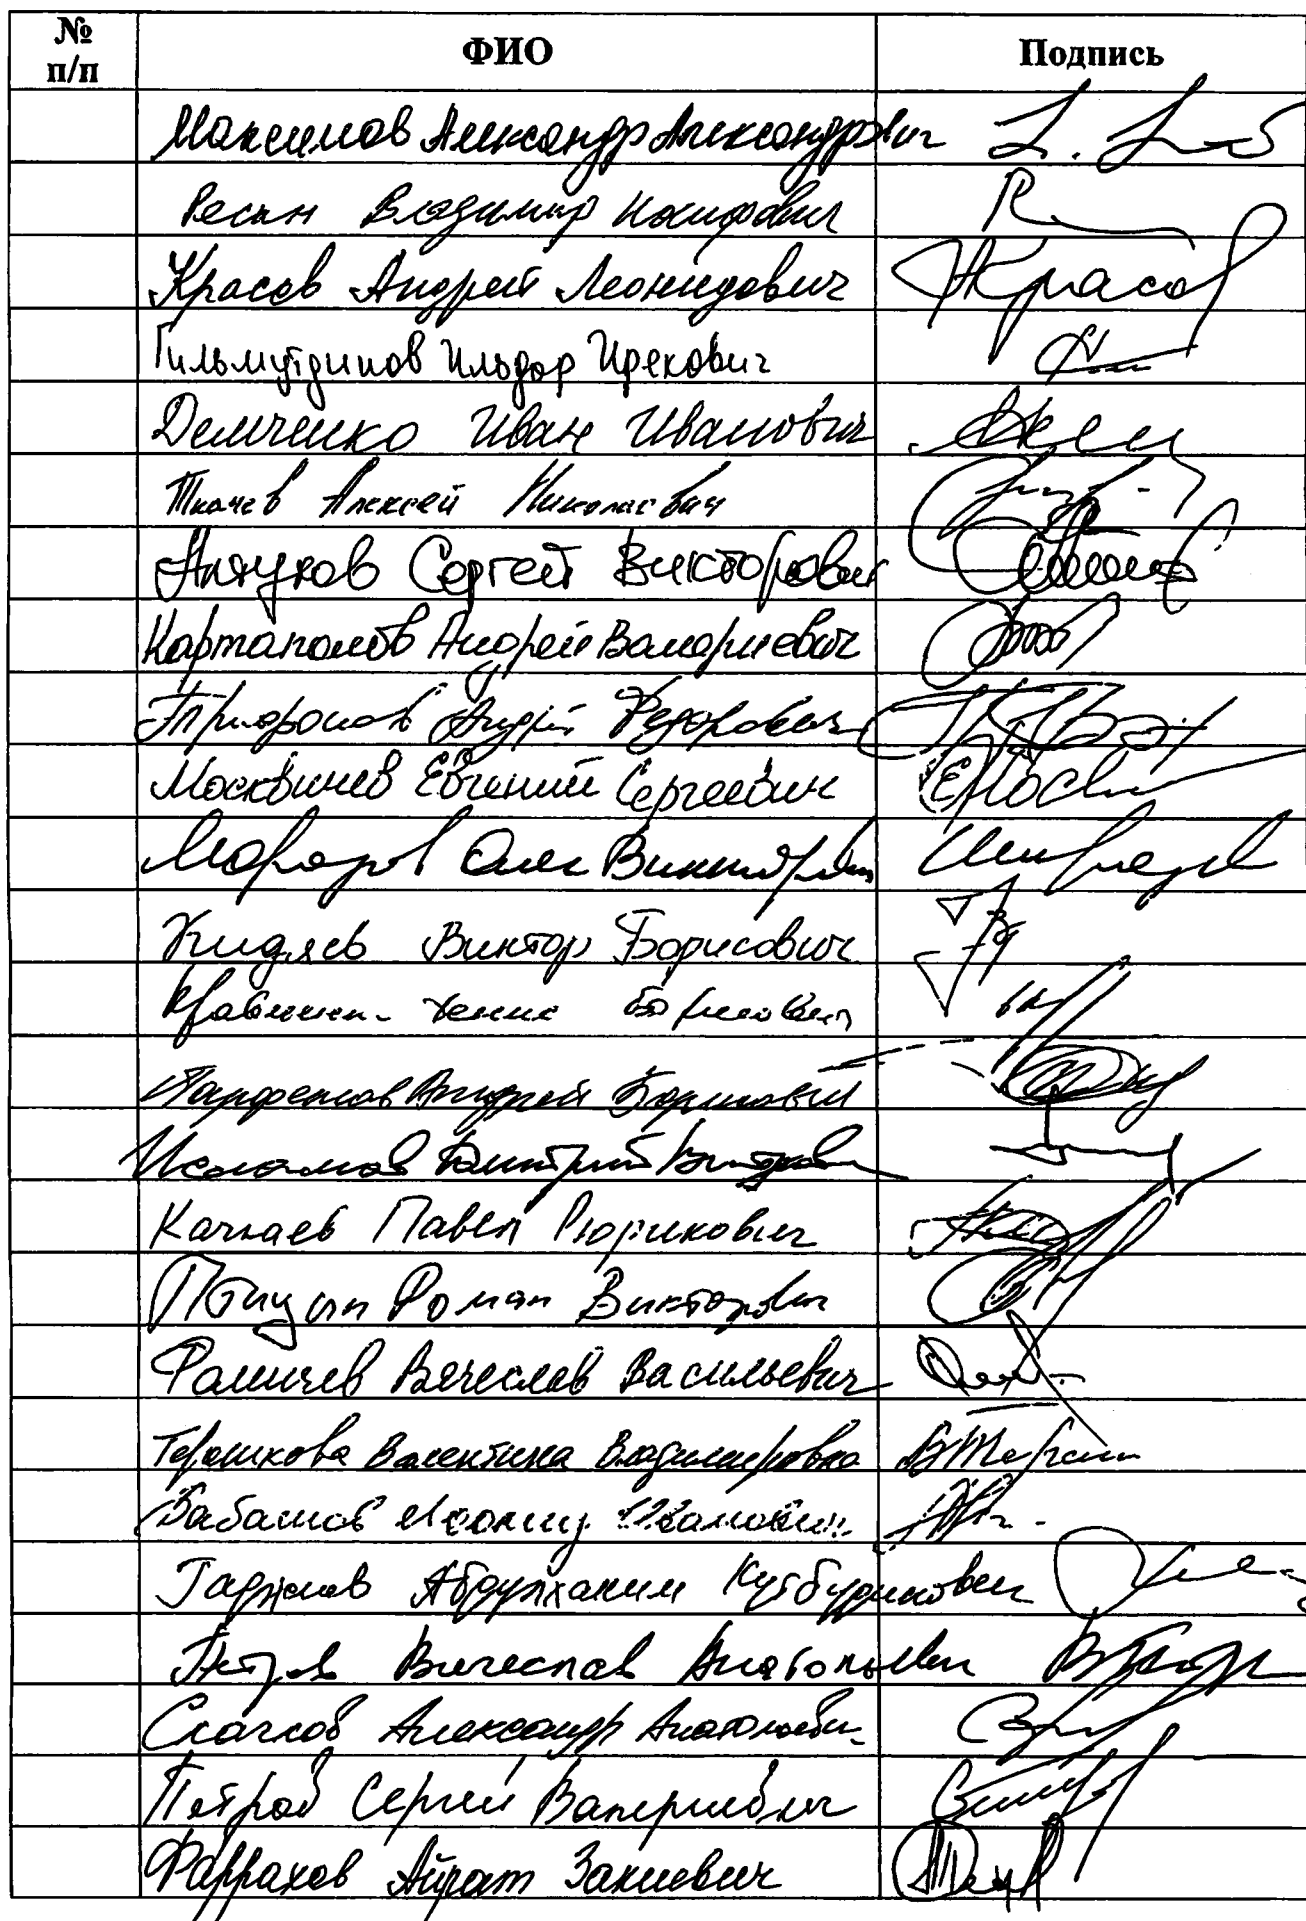 № п/п
ФИО
Подпись
Максимов Александр Александрович
Ресин Владимир Иосифович
Красов Андрей Леонидович
Красов
Гильмутдинов Ильдар Ирекович
Демченко Иван Иванович
Ткачев Алексей Николаевич
Алтухов Сергей Викторович
Картаполов Андрей Валериевич
Трифонов Андрей Федорович
Москвичев Евгений Сергеевич
Морозов Олег Викторович
Кидяев Виктор Борисович
Кравченко Денис Борисович
Парфенов Андрей Борисович
Исламов Дмитрий Викторович
Качкаев Павел Рюрикович
Птицын Роман Викторович
Фомичев Вячеслав Васильевич
Терешкова Валентина Владимировна
Бабашов Леонид Иванович
Гаджиев Абдулхаким Кутбудинович
Петров Вячеслав Анатольевич
Скачков Александр Анатольеви
Петров Сергей Валериевич
Фаррахов Айрат Закиевич